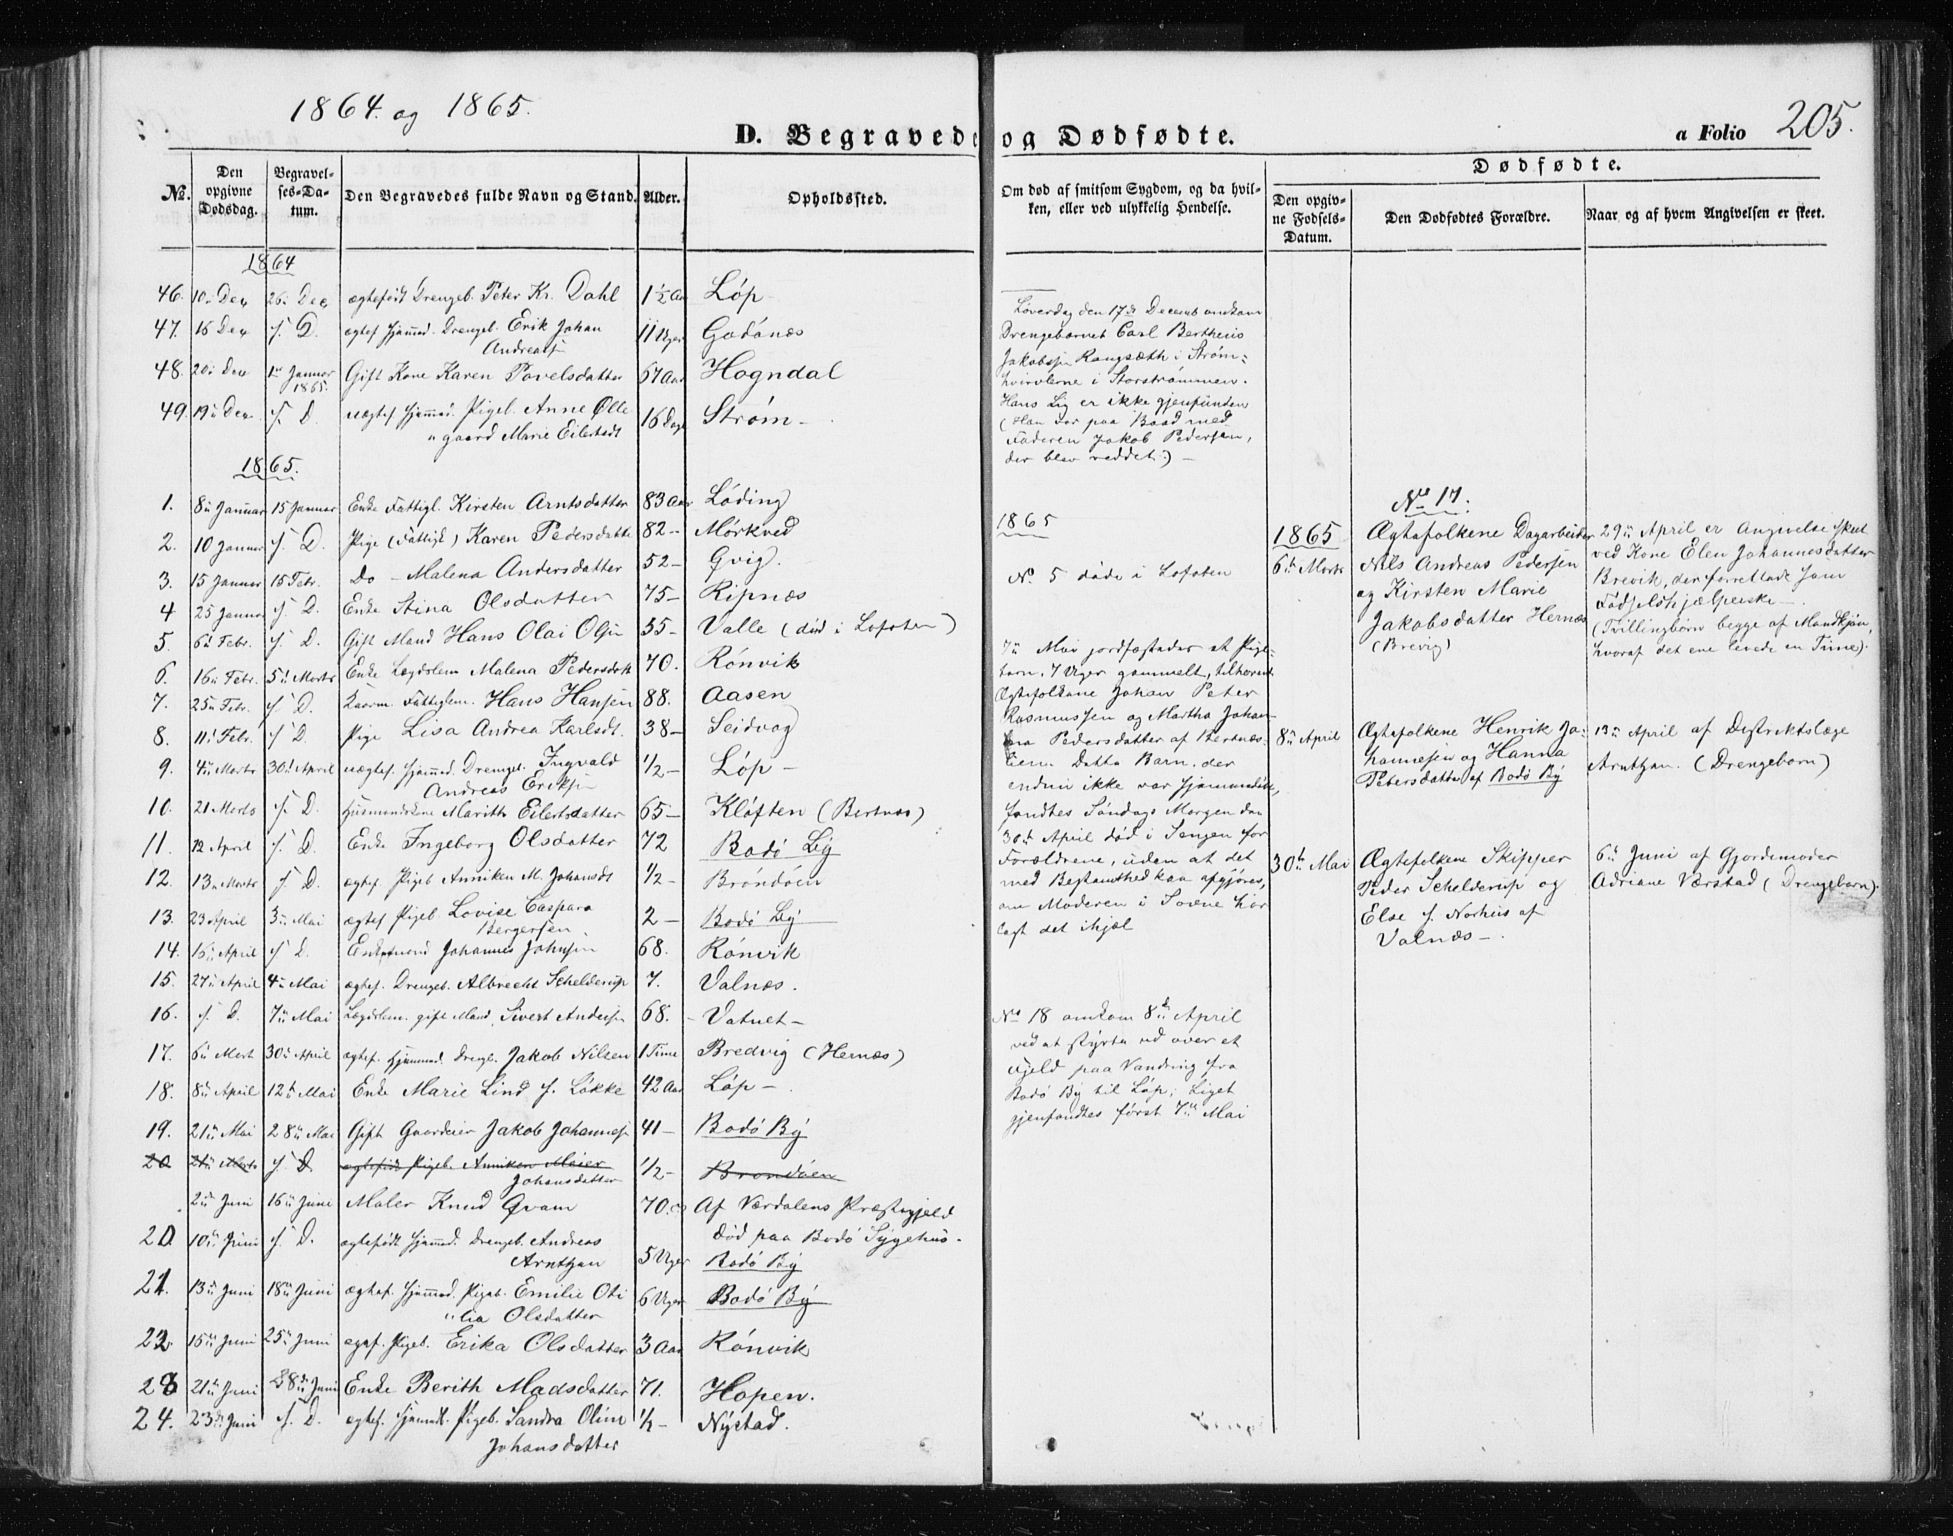 1864. og 1865.
D. Begravede og Dødfødte.
a Folio 205.
No.
Den opgivne Dødsdag.
Begravelses-Datum.
Den Begravedes fulde Navn og Stand.
Alder.
Opholdssted.
Om død af smitsom Sygdom, og da hvilken, eller ved ulykkelig Hendelse.
Dødfødte.
Den opgivne Fødsels-Datum.
Den Dødfødtes Forældre.
Naar og af hvem Angivelsen er skeet.
1864
46. 10 Dec 26 Dec ægtefødt Drengeb. Peter Kr. Dahl 1½ Aar Løp
47. 16 Dec s. D. ægtef. hjemmed. Drengeb. Erik Johan 11 Uger Godønæs
Andreass
48. 20 Dec 1 Januar 1865. Gift Kone Karen Povelsdatter 67 Aar Hogndal
49. 19 Dec. s. D. uægtef hjemmed. Pigeb. Anne Olle 16 Dage Strøm
gaard Marie Eilertsdt
1865.
1. 8 Januar 15 Januar Enke Fattigl. Kirsten Arntsdatter 83 Aar Løding
2. 10 Januar s. D. Pige (Fattigl) Karen Pedersdatte 82 Mørkved
3. 15 Januar 15 Febr. Do - Malena Andersdatter 52 Gvig.
4 25 Januar s. D. Enke Stina Olsdatter 75 Ripnæs
5. 6 Febr. s. D. Gift Mand Hans Olai Olsen 35 Valle (død i Lofoten)
6. 16 Febr. 5 Marts Enke Lægdslem Malena Pedersdatt 70. Rønvik
7. 25 Febr. s D. Kaarm. Fattiglem. Hans Hansen 88. Aasen
8. 11 Febr. s D. Pige Lisa Andrea Karlsdt. 38 Seidvog
9. 4 Marts 30 April uægtef. hjemmed. Drengeb. Ingvald ½ Løp
Andreas Eriksen
10. 21 Marts s. D. Husmandskone Marith Eilertsdatter 65 Kløften (Bertnæs)
11. 12 April s. D. Enke Ingeborg Olsdatter 72 Bodø By
12. 13 Marts s D. ægtef. Pigeb Anniken M. Johansdt ½ Brøndøen
13. 23 April 3 Mai ægtef Pigeb Lovise Caspara 2 Bodø By
Bergersen
14. 16 April s D. Enkemand Johannes Johnsen 68. Rønvik
15. 27 April 4 Mai ægtef. Drengeb. Albrecht Schelderup 7. Valnæs.
16. s. D. 7 Mai Lægdslem. gift Mand, Sivert Andersen 68. Vatnet
17. 6 Mart 30 April ægtef. hjemmed. Drengb. Jakob Nilsen 1 Time Bredvig (Hernæs)
18. 8 April 12 Mai Enke Marie Lind f. Løkke 42 Aar Løp
19. 21 Mai 28 Mai Gift Gaardeier Jakob Johannes 41 Bodø By
20 21 Marts s. D. ægtefødt Pigeb. Anniken Meier ½ Brøndøen
Johansdatter
2 Juni 16 Juni Maler Knud Qvam 70. Af Værdalens Præstegjeld
død paa Bodø Sygehus.
20. 10 Juni s D. ægtefødt hjemmed. Drengeb. Andreas
Arntzen 5 Uger Bodø By
21. 13 Juni 18 Juni ægtef. hjemmed. Pigeb. Emilie Oti 6 Uger Bodø By
lia Olsdatter
22. 15 Juni 25 Juni ægtef. Pigeb. Erika Olsdatter 3 Aar Rønvik
23 21 Juni 28 Juni Enke Berith Madsdatter 71. Hopen.
24. 23 Juni s. D. ægtef. hjemmedt. Pigeb. Sandra Oline ½ Nystad.
Johansdatter
Løverdag den 17de Decemb omkom
Drengebarnet Carl Bertheus
Jakobssen Rangsæth i Strøm-
hvirvlerne i Storstrømmen.
Hans Lig er ikke gjenfunden
(Han var paa Baad med
Faderen Jakob Pedersen,
der blev reddet.)
1865
No. 5 døde i Lofoten
7 Mai jordfæstedes et Pige-
barn, 7 Uger gammelt, tilhørende
Ægtefolkene Johan Peter
Rasmussen og Martha Johan-
na Pedersdatter af Bertnæs-
lien. Dette Barn, der
endnu ikke var hjemmedøbt,
fandtes Søndags Morgen den
30 April død i Sengen hos
Forældrene, uden at det
med Bestemthed kan afgjøres,
om Moderen i Søvne har
lagt det ihjel
No 18 omkom 8de April
ved at styrte ud over et
Fjeld paa Vandring fra
Bodø By til Løp; Liget
gjenfandtes først 7 Mai
No. 17.
1865
6 Mark Ægtefolkene Dagarbeider
Nils Andreas Pedersen
og Kirsten Marie
Jakobsdatter Hernæs
(Brevig)
29 April er Angivelse skeet
ved Kone Elen Johannesdatter
Brevik, der forrettede som
Fødselshjælperske.
(Tvillingbørn begge af Mandkjøn,
hvoraf det ene levede en Time).
8 April Ægtefolkene Henrik Jo-
hannesen og Hanna
Petersdatter af Bodø By
13 April af Distriktslæge
Arntzen. (Drengebarn)
30 Mai Ægtefolkene Skipper
Peder Schelderup og
Else f. Norhus af
Valnæs.
6 Juni af Gjordemoder
Adriane Værstad (Drengebarn).